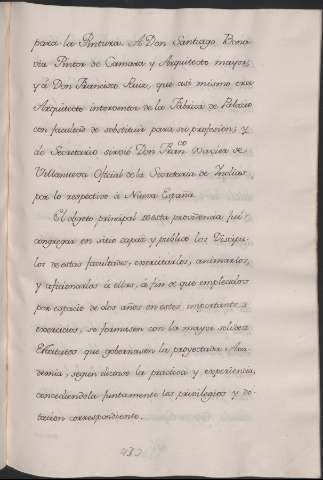 para la Pintura. A Don Santiago Bona
via Pintor de Camara y Arquitecto mayor,
y á Don Francisco Ruiz, que asi mismo era
Arquitecto interventor de la Fabrica de Palacio
con facultad de substituir para su profesion; y
de Secretario sirvió Don Fran.co Xavier de
Villanueva Oficial de la Secretaria de Indias
por lo respectivo á Nueva España.
El objeto principal de esta providencia fué
congregar en sitio capaz y público los Discipu-
los de estas facultades, exercitarlos, animarlos,
y aficionarlos á ellas, á fin de que empleados
por espacio de dos años en estos importantes
exercicios, se formasen con la mayor solidez
Estatutos que gobernasen la proyectada Aca-
demia, segun dictase la practica y experiencia,
concediendola juntamente los privilegios y do-
tacion correspondiente.